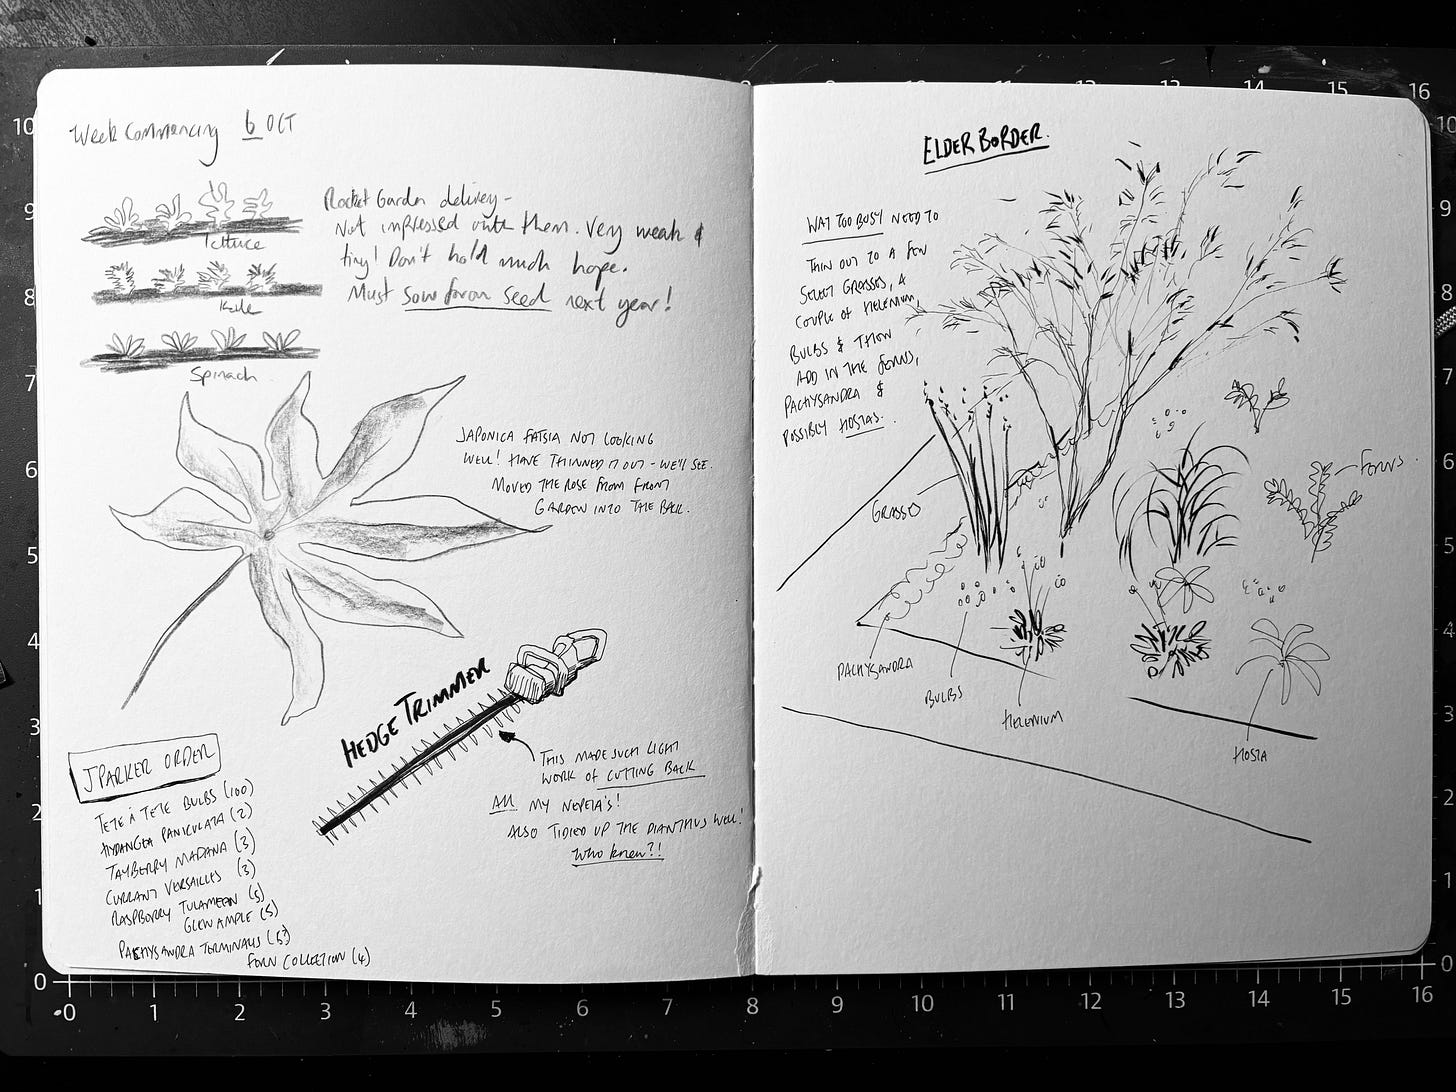 Week Commencing 6 OCT
Lettuce
Kale
Spinach
Rocket Garden delivery -
Not impressed with them. Very weak &
tiny! Don't hold much hope.
Must sow from seed next year!
JAPONICA FATSIA NOT LOOKING
WELL! HAVE THINNED IT OUT - WE'LL SEE.
MOVED THE ROSE FROM FRONT
GARDEN INTO THE BACK.
HEDGE TRIMMER
THIS MADE SUCH LIGHT
WORK OF CUTTING BACK
ALL MY NEPETA'S!
ALSO TIDIED UP THE DIANTHUS WELL!
Who knew?!
J PARKER ORDER
TETE À TETE BULBS (100)
HYDANGEA PANICULATA (2)
TAYBERRY MADANA (3)
CURRANT VERSAILLES (3)
RASPBERRY TULAMEEN (5)
GLEN AMPLE (5)
PACHYSANDRA TERMINALIS (5)
FERN COLLECTION (4)
ELDER BORDER.
WAY TOO BUSY NEED TO
THIN OUT TO A FEW
SELECT GRASSES, A
COUPLE OF HELENIUM,
BULBS & THEN
ADD IN THE FERNS,
PACHYSANDRA &
POSSIBLY HOSTAS.
GRASSES
FERNS
PACHYSANDRA
BULBS
HELENIUM
HOSTA
10
9
8
7
6
5
4
3
2
1
0
0 1 2 3 4 5 6 7 8 9 10 11 12 13 14 15 16
8 9 10 11 12 13 14 15 16
10
9
8
7
6
5
4
3
2
1
0